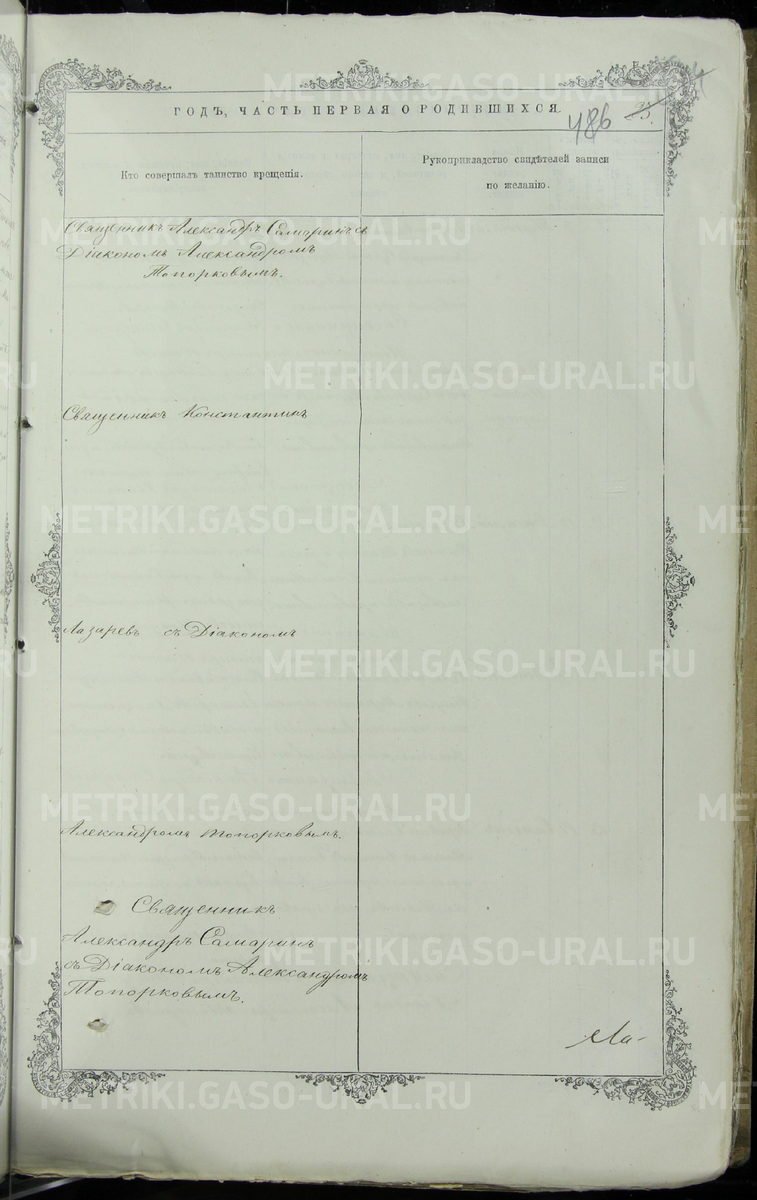 METRIKI.GASO-URAL.RU
ГОДЪ, ЧАСТЬ ПЕРВАЯ О РОДИВШИХСЯ.
486
Кто совершалъ таинство крещенія.
Рукоприкладство свидѣтелей записи
по желанію.
Священникъ Александръ Самаринъ съ
Діакономъ Александромъ
Топорковымъ.
Священникъ Константинъ
Лазаревъ съ Діакономъ
Александромъ Топорковымъ.
Священникъ
Александръ Самаринъ
съ Діакономъ Александромъ
Топорковымъ.
Ма-